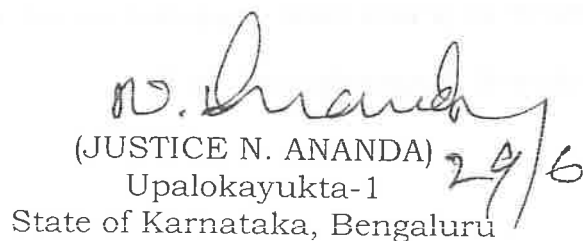 N. Ananda
(JUSTICE N. ANANDA) 29/6
Upalokayukta-1
State of Karnataka, Bengaluru